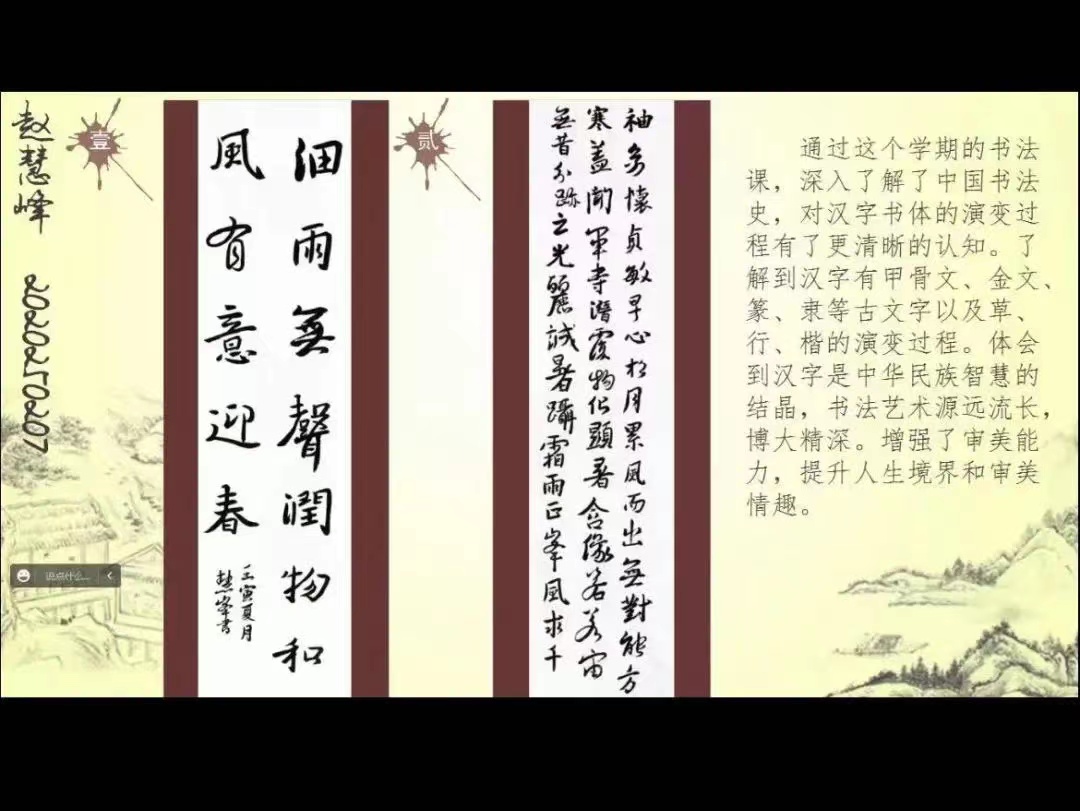 赵慧峰
壹
細雨無聲潤物和
風有意迎春
壬寅夏月
慧峯書
贰
袖多懷貞敏早心松月累風而出無對能方
寒蓋閒軍寺潛覆物化顯著含像若宙
無昔分跡之光麗誠暑躡霜雨正峯風求千
通过这个学期的书法
课，深入了解了中国书法
史，对汉字书体的演变过
程有了更清晰的认知。了
解到汉字有甲骨文、金文、
篆、隶等古文字以及草、
行、楷的演变过程。体会
到汉字是中华民族智慧的
结晶，书法艺术源远流长，
博大精深。增强了审美能
力，提升人生境界和审美
情趣。
说点什么...